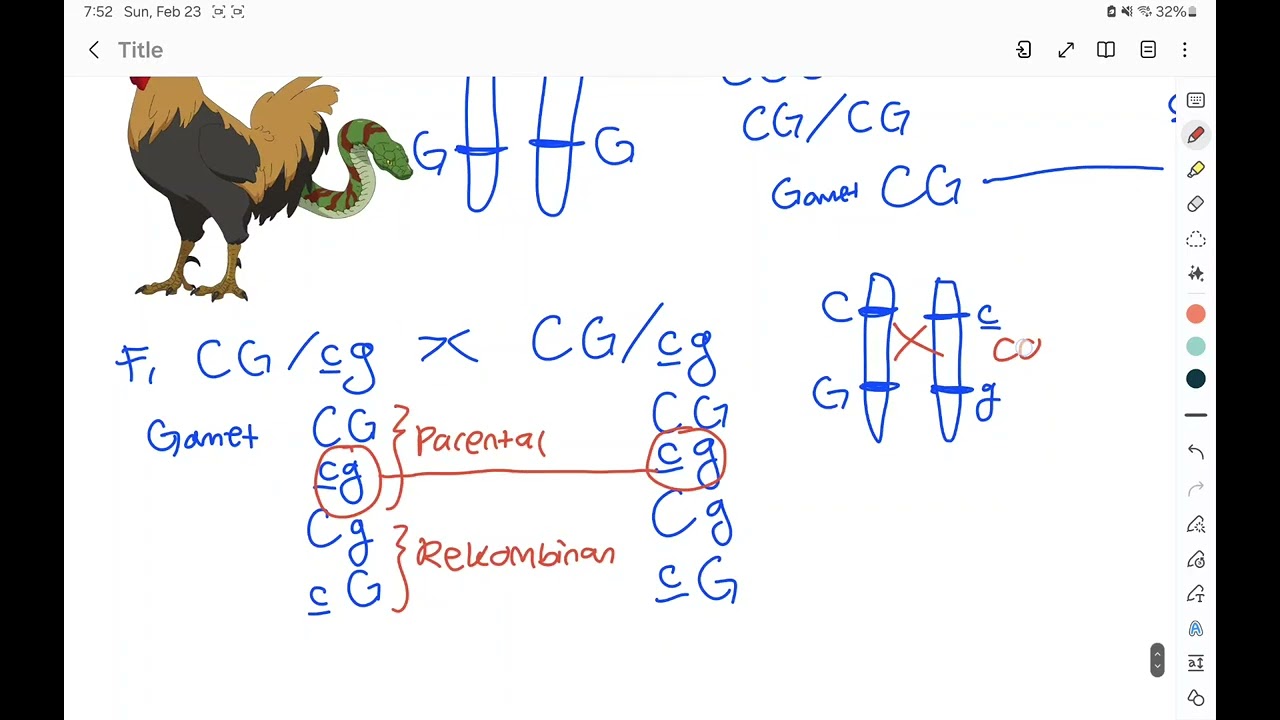 7:52 Sun, Feb 23
32%
Title
G G
CG/CG
Gamet CG
C c
co
G g
F1 CG/cg × CG/cg
Gamet
CG Parental CG
cg cg
Cg Rekombinan Cg
cG cG